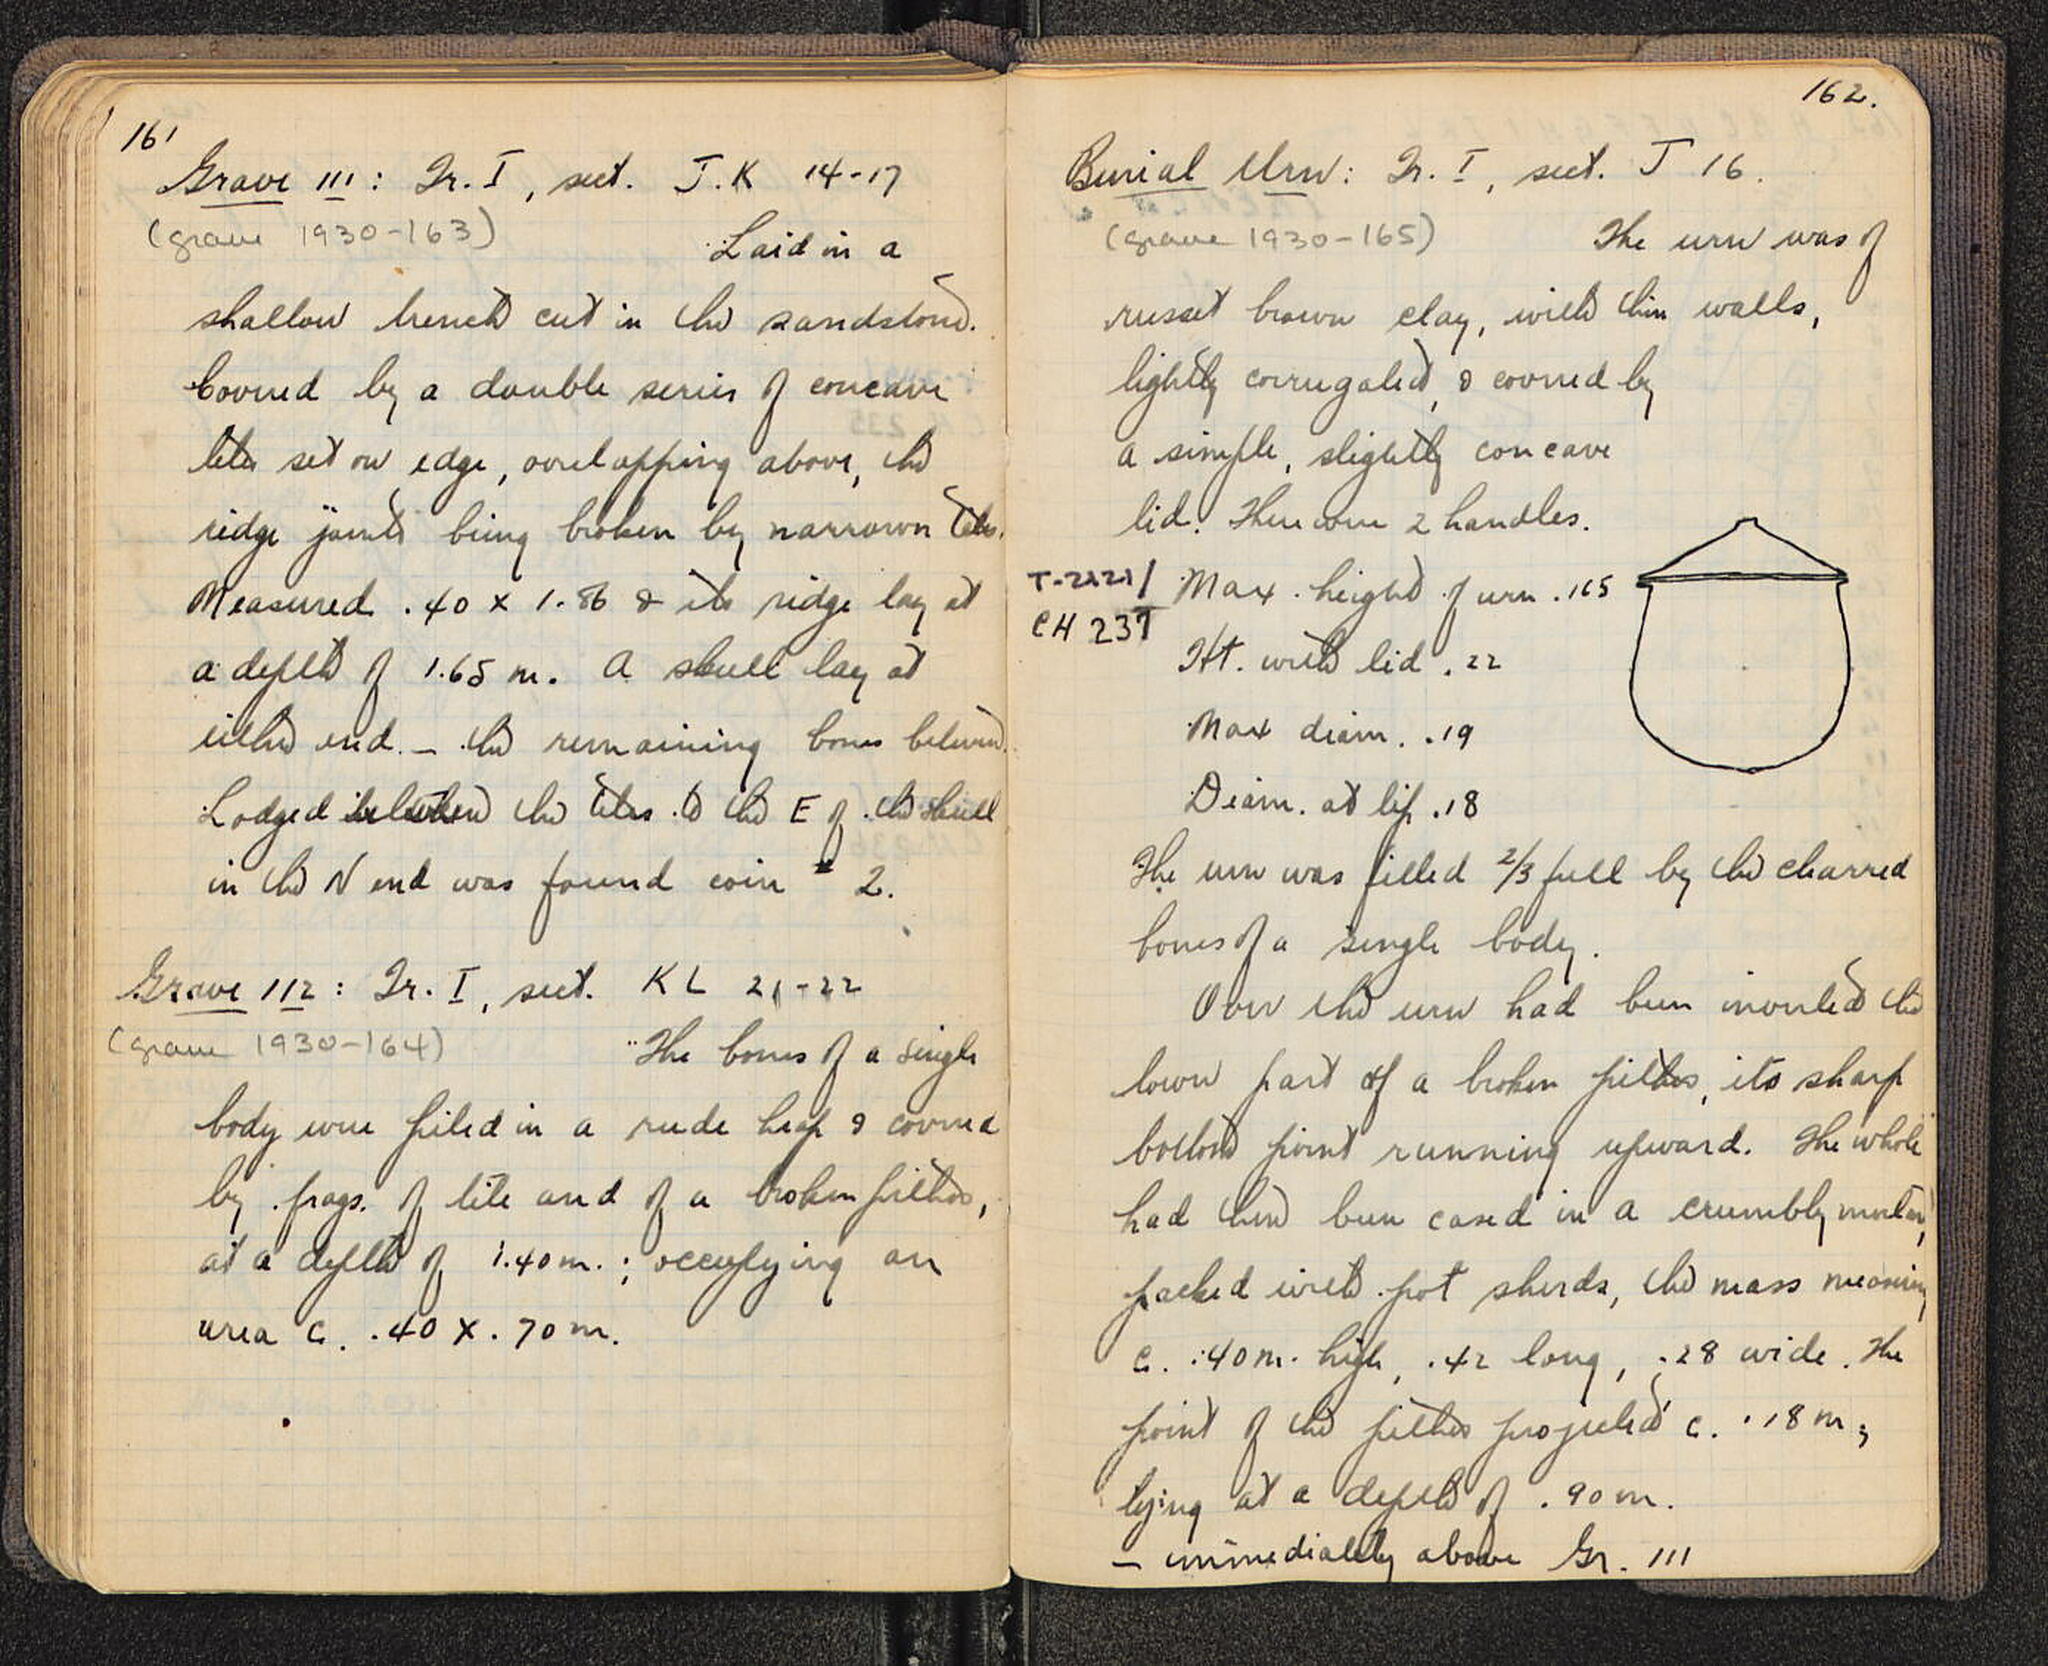 161
Grave 111: Tr. I, sect. J.K 14-17
(grave 1930-163)
Laid in a
shallow trench cut in the sandstone.
Covered by a double series of concave
tiles set on edge, overlapping above, the
ridge joints being broken by narrown tiles.
Measured .40 x 1.86 & its ridge lay at
a depth of 1.65 m. A skull lay at
either end – the remaining bones between.
Lodged between the tiles to the E of the skull
in the N end was found coin # 2.
Grave 112: Tr. I, sect. KL 21-22
(grave 1930-164)
The bones of a single
body were piled in a rude heap & covered
by frags. of tile and of a broken pithos,
at a depth of 1.40 m.; occupying an
area c. .40 x .70 m.
162.
Burial Urn: Tr. I, sect. J 16.
(grave 1930-165)
The urn was of
russet brown clay, with thin walls,
lightly corrugated, & covered by
a simple, slightly concave
lid. There were 2 handles.
T-2221/
CH 237
Max. height of urn .165
Ht. with lid .22
Max diam. .19
Diam. at lip .18
The urn was filled 2/3 full by the charred
bones of a single body.
Over the urn had been inverted the
lower part of a broken pithos, its sharp
bottom point running upward. The whole
had then been cased in a crumbly mortar,
packed with pot sherds, the mass measuring
c. .40 m. high, .42 long, .28 wide. The
point of the pithos projected c. .18 m;
lying at a depth of .90 m.
– immediately above Gr. 111